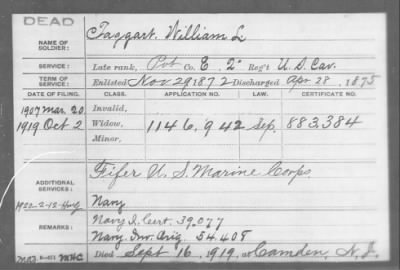 DEAD
NAME OF SOLDIER: Taggart, William L.
SERVICE: Late rank, Pvt Co. E, 2" Reg't U.S. Cav.
TERM OF SERVICE: Enlisted Nov 29 1872 Discharged Apr 28, 1875
DATE OF FILING. CLASS. APPLICATION NO. LAW. CERTIFICATE NO.
1907 Mar. 20 Invalid,
1919 Oct 2 Widow, 1146.942 Sep. 883.384
Minor,
ADDITIONAL SERVICES: Fifer U.S. Marine Corps
Navy
REMARKS: Navy I. Cert. 39.077
Navy Inv. Orig. 54.408
Died Sept 16, 1919, at Camden, N.J.